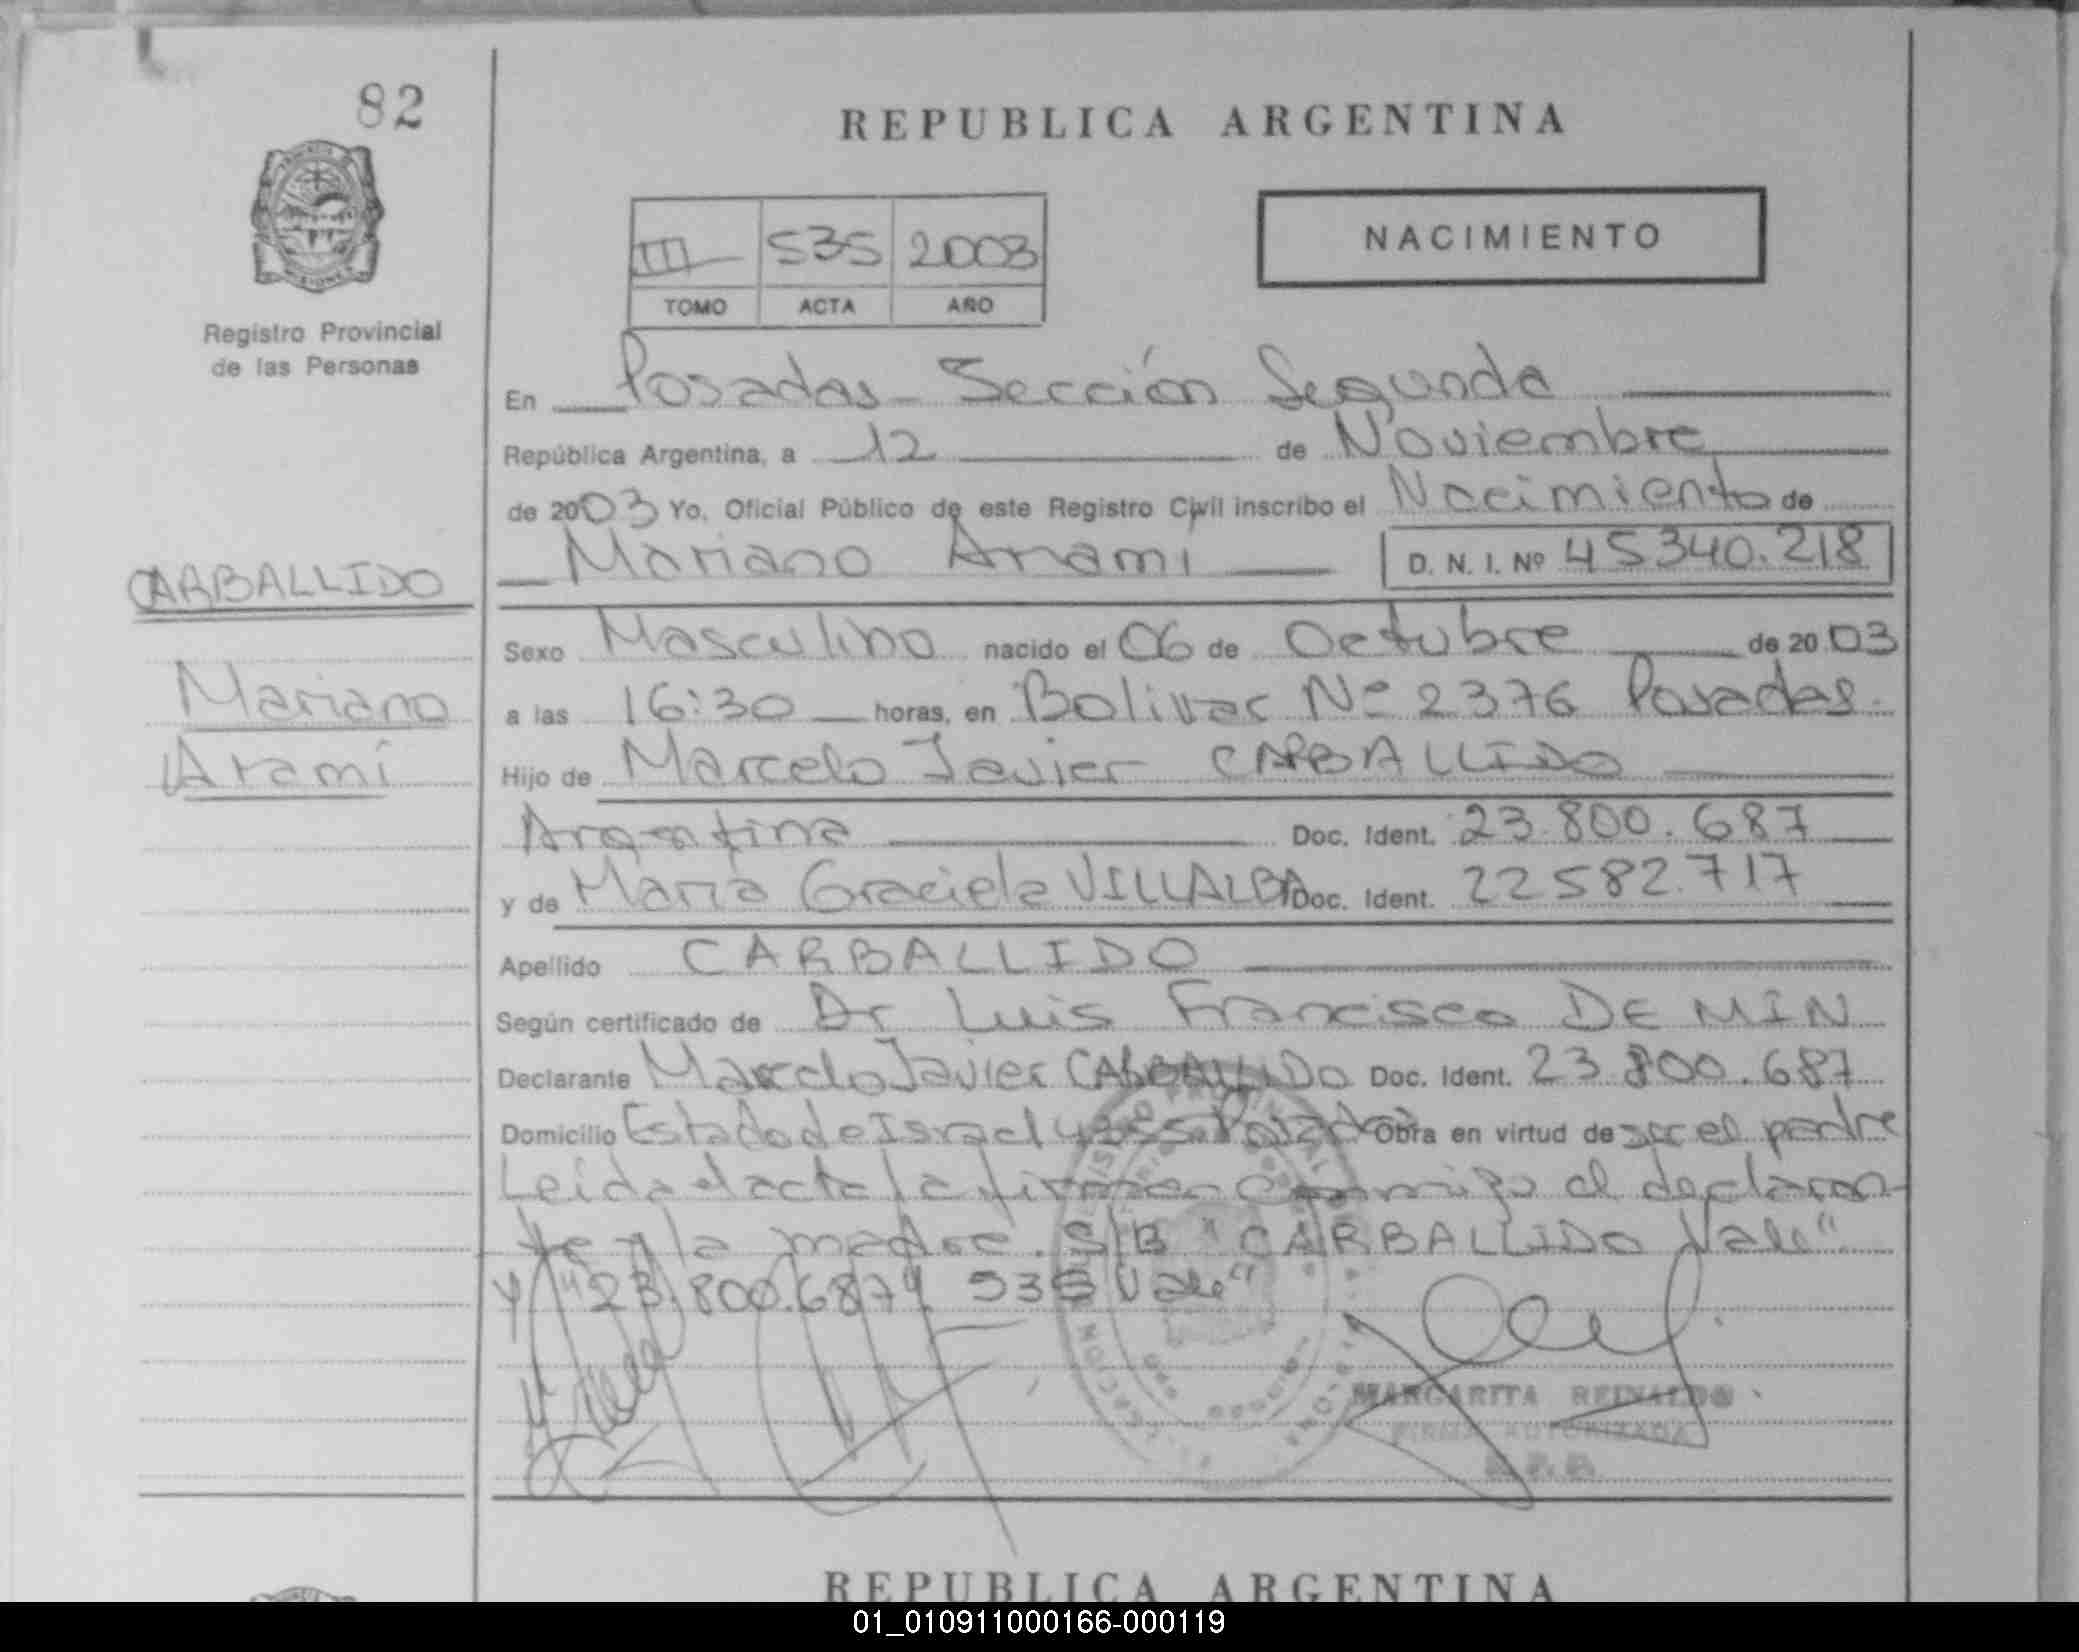 82
REPUBLICA ARGENTINA
NACIMIENTO
III 535 2003
TOMO ACTA AÑO
Registro Provincial
de las Personas
En Posadas - Sección Segunda
República Argentina, a 12 de Noviembre
de 2003 Yo, Oficial Público de este Registro Civil inscribo el Nacimiento de
Mariano Aramí D. N. I. Nº 45340.218
CARBALLIDO
Mariano
Aramí
Sexo Masculino nacido el 06 de Octubre de 2003
a las 16:30 horas, en Bolivar Nº 2376 Posadas.
Hijo de Marcelo Javier CARBALLIDO
Argentina Doc. Ident. 23.800.687
y de María Graciela VILLALBA Doc. Ident. 22582.717
Apellido CARBALLIDO
Según certificado de Dr Luis Francisco DE MIN
Declarante Marcelo Javier CARBALLIDO Doc. Ident. 23.800.687
Domicilio Estado de Israel y Posadas Obra en virtud de ser el padre
Leida el acta la firman conmigo el declaran-
te y la madre. S/B "CARBALLIDO Vale"
y "23.800.687 y 535 Vale"
MARGARITA REINALDO
FIRMA AUTORIZADA
REPUBLICA ARGENTINA
01_010911000166-000119